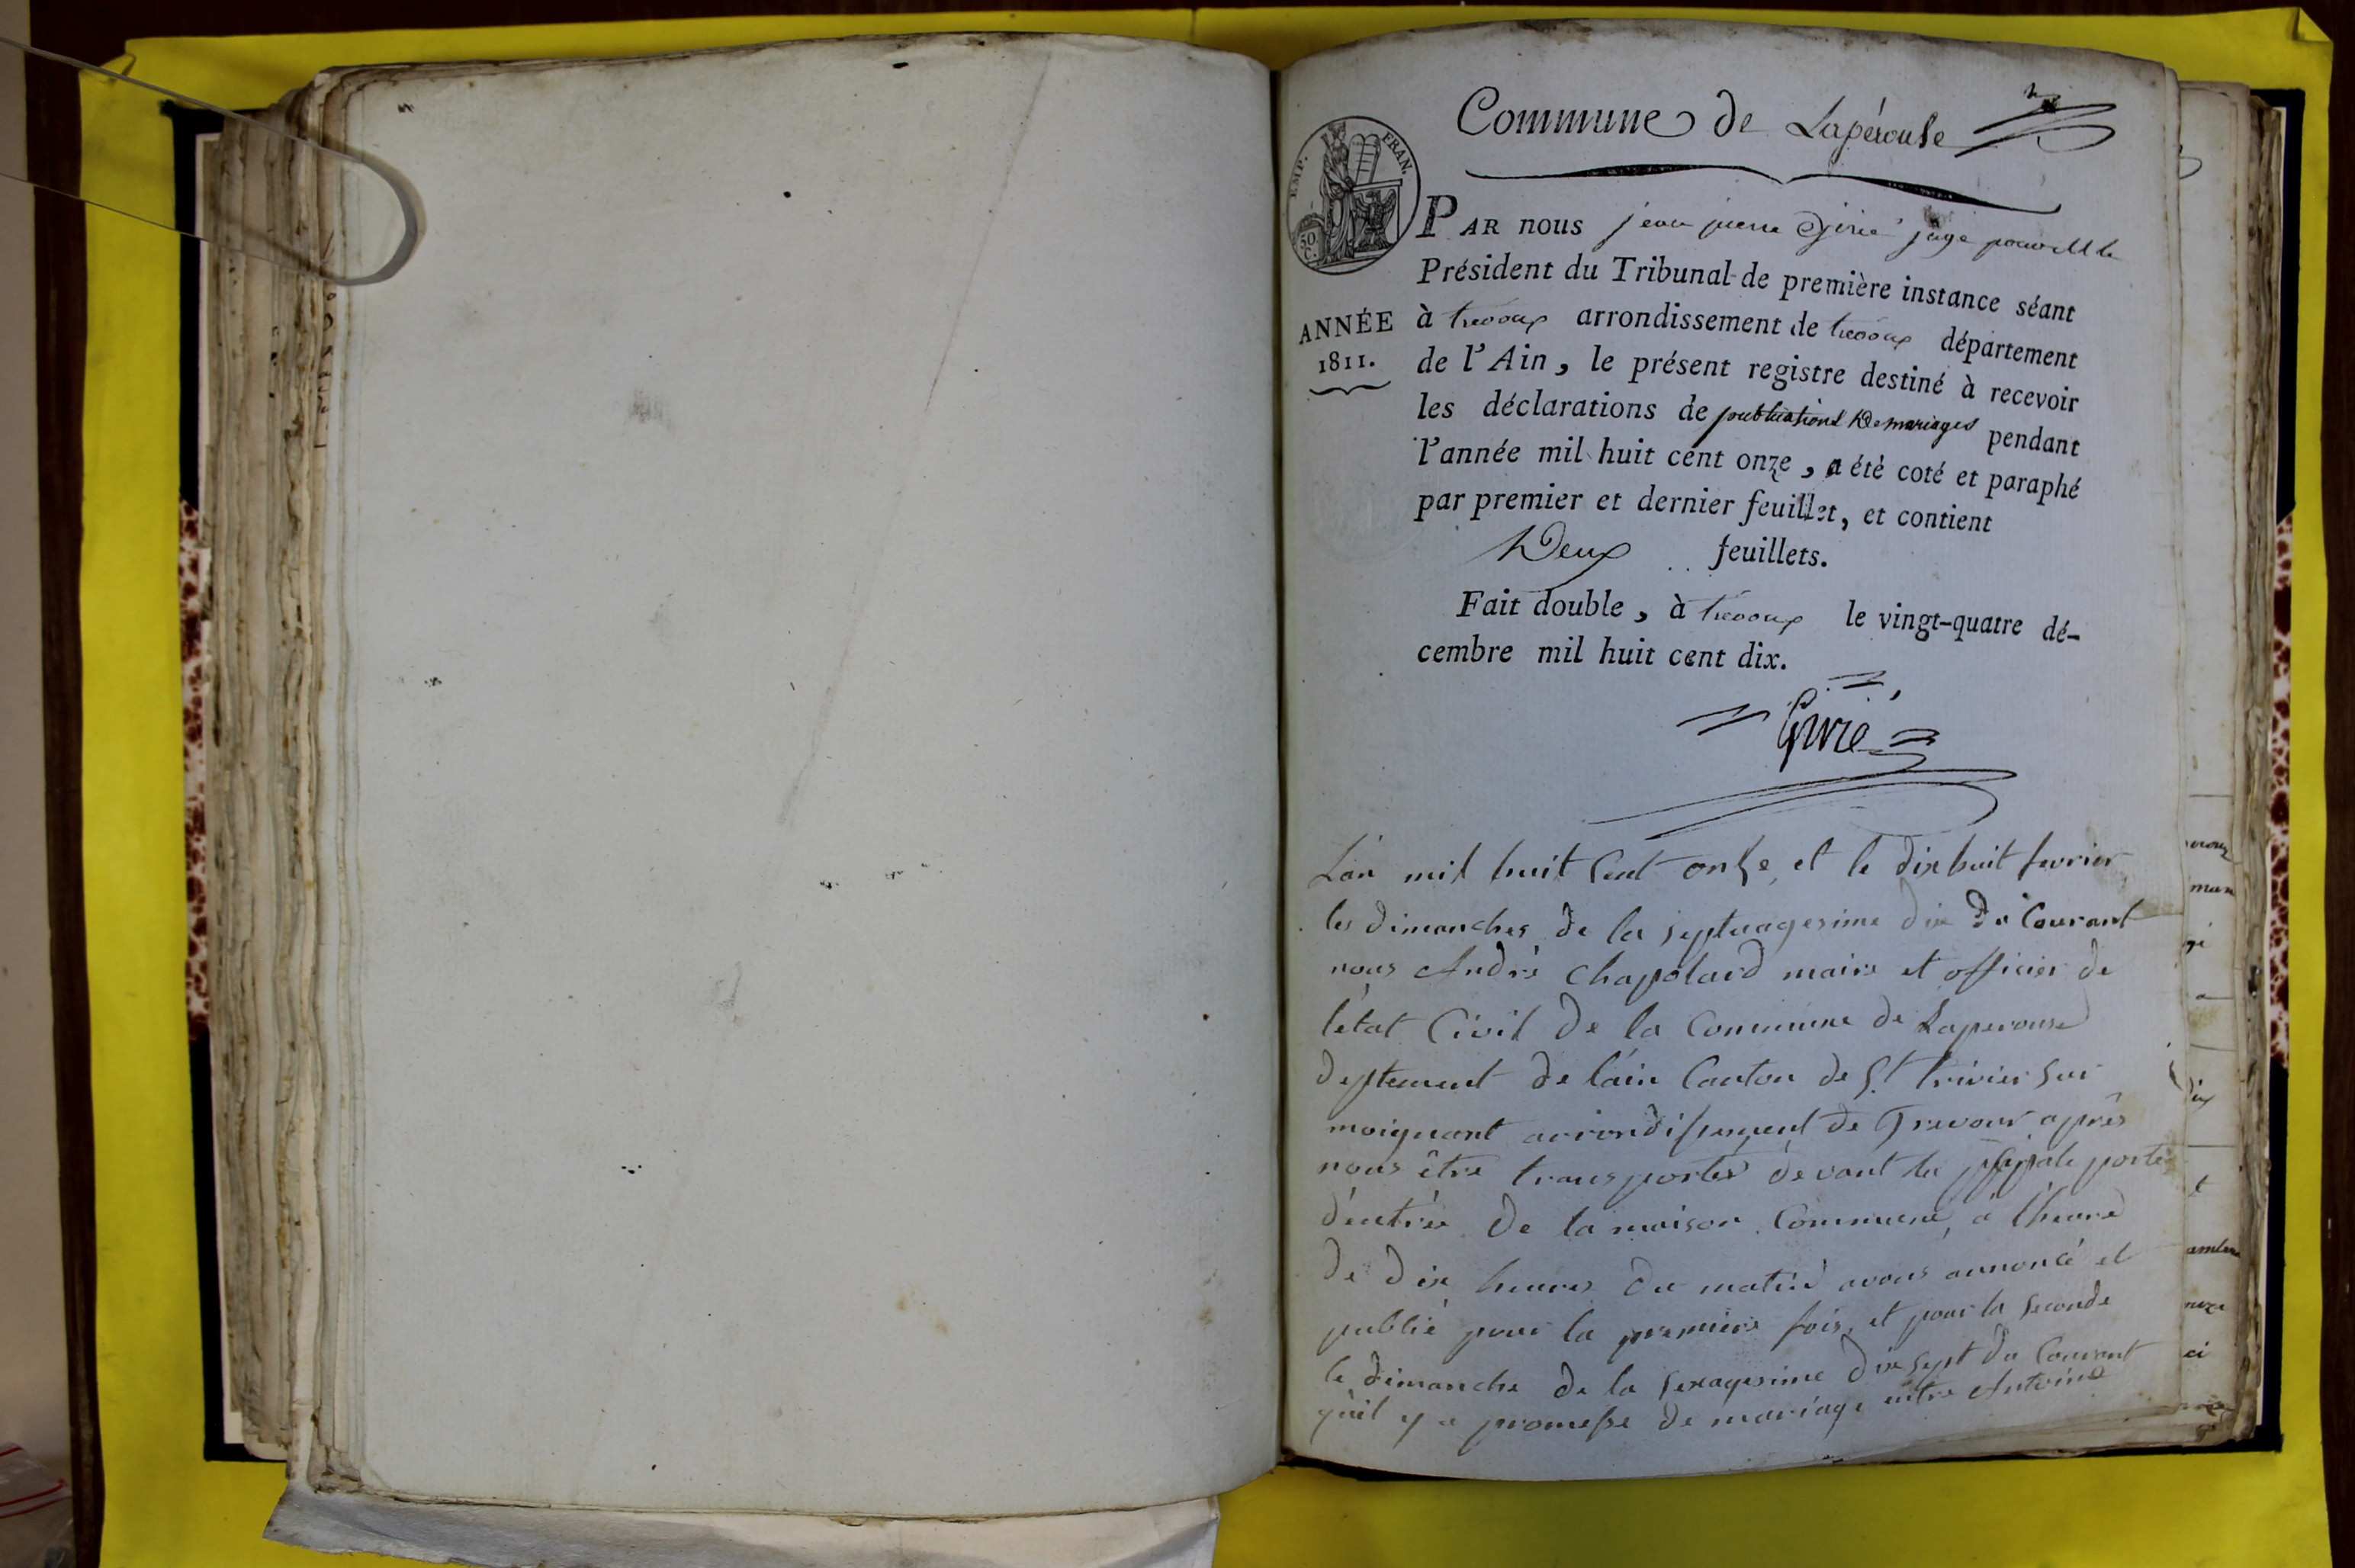 Commune de Lapérouse
EMP. FRAN.
50 C.
ANNÉE
1811.
PAR nous jean pierre Givrié juge pour M le
Président du Tribunal de première instance séant
à trevoux arrondissement de trevoux département
de l'Ain, le présent registre destiné à recevoir
les déclarations de publications De mariages pendant
l'année mil huit cent onze, a été coté et paraphé
par premier et dernier feuillet, et contient
Deux feuillets.
Fait double, à trevoux le vingt-quatre dé-
cembre mil huit cent dix.
Givrié
L'an mil huit Cent onze, et le dix huit fevrier
les dimanches de la septuagesime dix du Courant
nous André Chapolard maire et officier de
l'état Civil de la Commune de Laperouse
deptement de l'ain Canton de St trivier sur
moignant arrondissement de Trevoux après
nous être transporter devant la ppale porte
d'entrée de la maison Commune, a l'heure
de dix heures du matin avons annoncé et
publié pour la premiere fois, et pour la seconde
le dimanche de la sexagesime dix sept du Courant
qu'il y a promesse de mariage entre Antoine